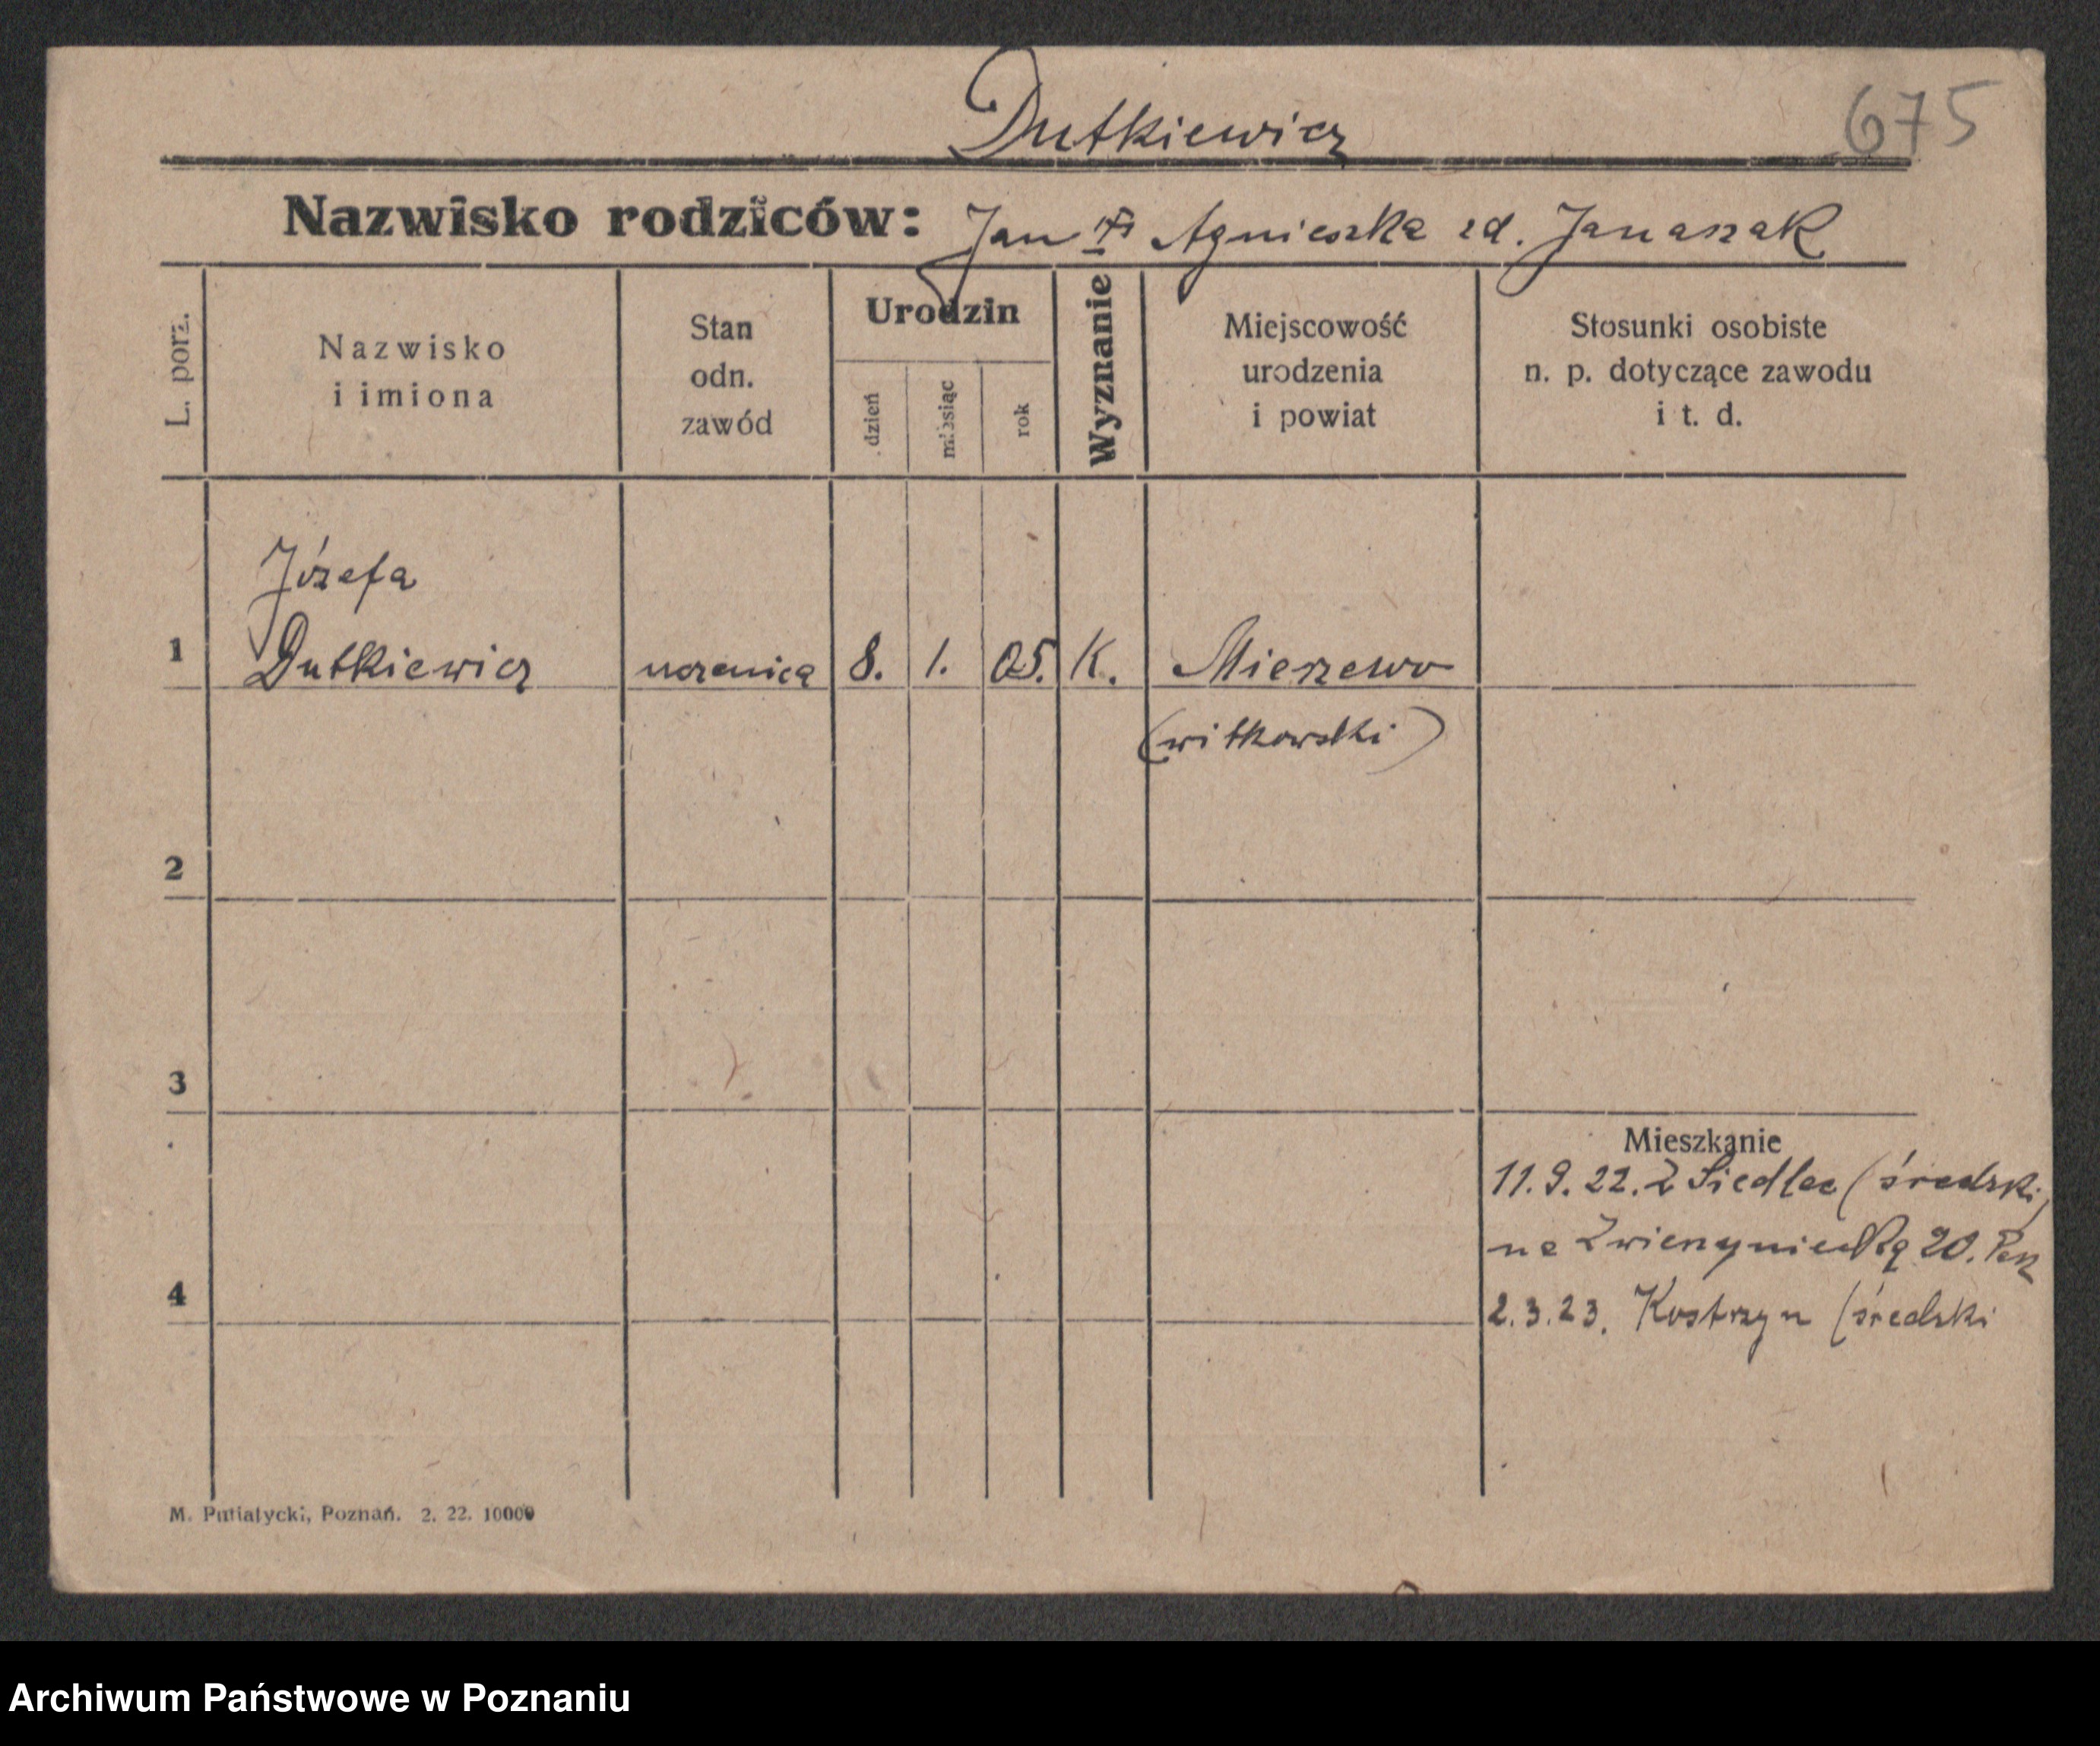 Dutkiewicz
675
Nazwisko rodziców: Jan Agnieszka zd. Janaszak
L. porz.
Nazwisko
i imiona
Stan
odn.
zawód
Urodzin
dzień
miesiąc
rok
Wyznanie
Miejscowość
urodzenia
i powiat
Stosunki osobiste
n. p. dotyczące zawodu
i t. d.
Józefa
1 Dutkiewicz uczenica 8. 1. 05. K. Mierzewo
(witkowski)
2
3
Mieszkanie
11.9.22. z Siedlec (średzki)
na Zwierzyniecką 20. Pozn
4
2.3.23. Kostrzyn (średzki
M. Putiatycki, Poznań. 2. 22. 10000
Archiwum Państwowe w Poznaniu